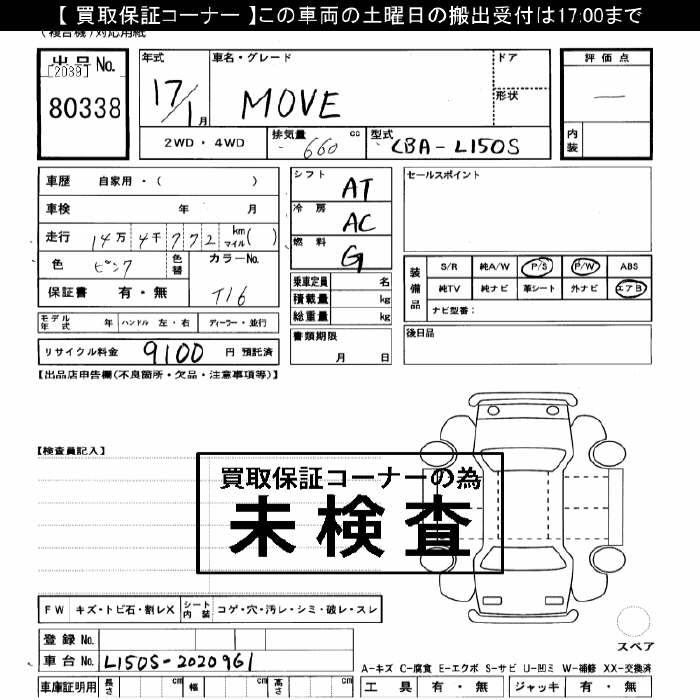 【 買取保証コーナー 】この車両の土曜日の搬出受付は17:00まで
(複合機)対応用紙
出品No.
[2039]
80338
年式
17/1月
車名・グレード
MOVE
ドア
形状
評価点
—
内装
2WD・4WD
排気量 660 cc
型式 CBA-L150S
車歴 自家用・( )
車検 年 月
走行 14万4千772 km マイル( )
色 ピンク
色替
カラーNo.
T16
保証書 有・無
シフト AT
冷房 AC
燃料 G
乗車定員 名
積載量 kg
総重量 kg
書類期限
月 日
セールスポイント
装備品
S/R 純A/W P/S P/W ABS
純TV 純ナビ 革シート 外ナビ エアB
ナビ型番:
後日品
モデル年式 年 ハンドル 左・右 ディーラー・並行
リサイクル料金 9100 円 預託済
【出品店申告欄(不良箇所・欠品・注意事項等)】
【検査員記入】
買取保証コーナーの為
未検査
FW キズ・トビ石・割レX シート内装 コゲ・穴・汚レ・シミ・破レ・スレ
登録No.
車台No. L150S-2020961
車庫証明用 長さ cm 幅 cm 高さ cm
スペア
A-キズ C-腐食 E-エクボ S-サビ U-凹ミ W-補修 XX-交換済
工具 有・無 ジャッキ 有・無